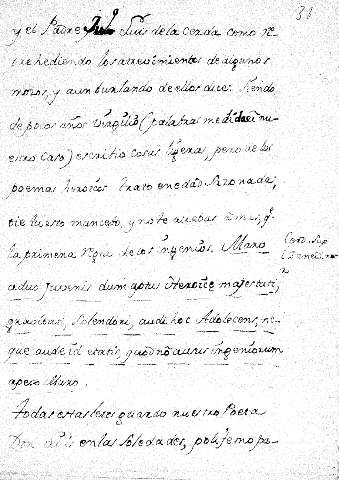 31
y el Padre Juº Luis de la cerda como re
prehediendo los atrevimientos de algunos
mozos, y aun burlando de ellos dice: siendo
de pocos años Virgilio (palabras medidas a nu
estro caso) escrivio cosas ligeras, pero de los
poemas heroicos trato en edad sazonada,
oie tu esto mancebo, y no te atrebas a mas, q.
la primera regla de los ingenios. Maro
aduc Juvenis dum aptus Heroice majestati,
gravitati, Splendori, audi hoc Adolecens, ne-
que aude id etatis, quod non ausus ingeniorum
apex Maro.
Cerd. sup.
Todas estas leies guardo nuestro Poeta
Don Luis en las soledades, polifemo pa-